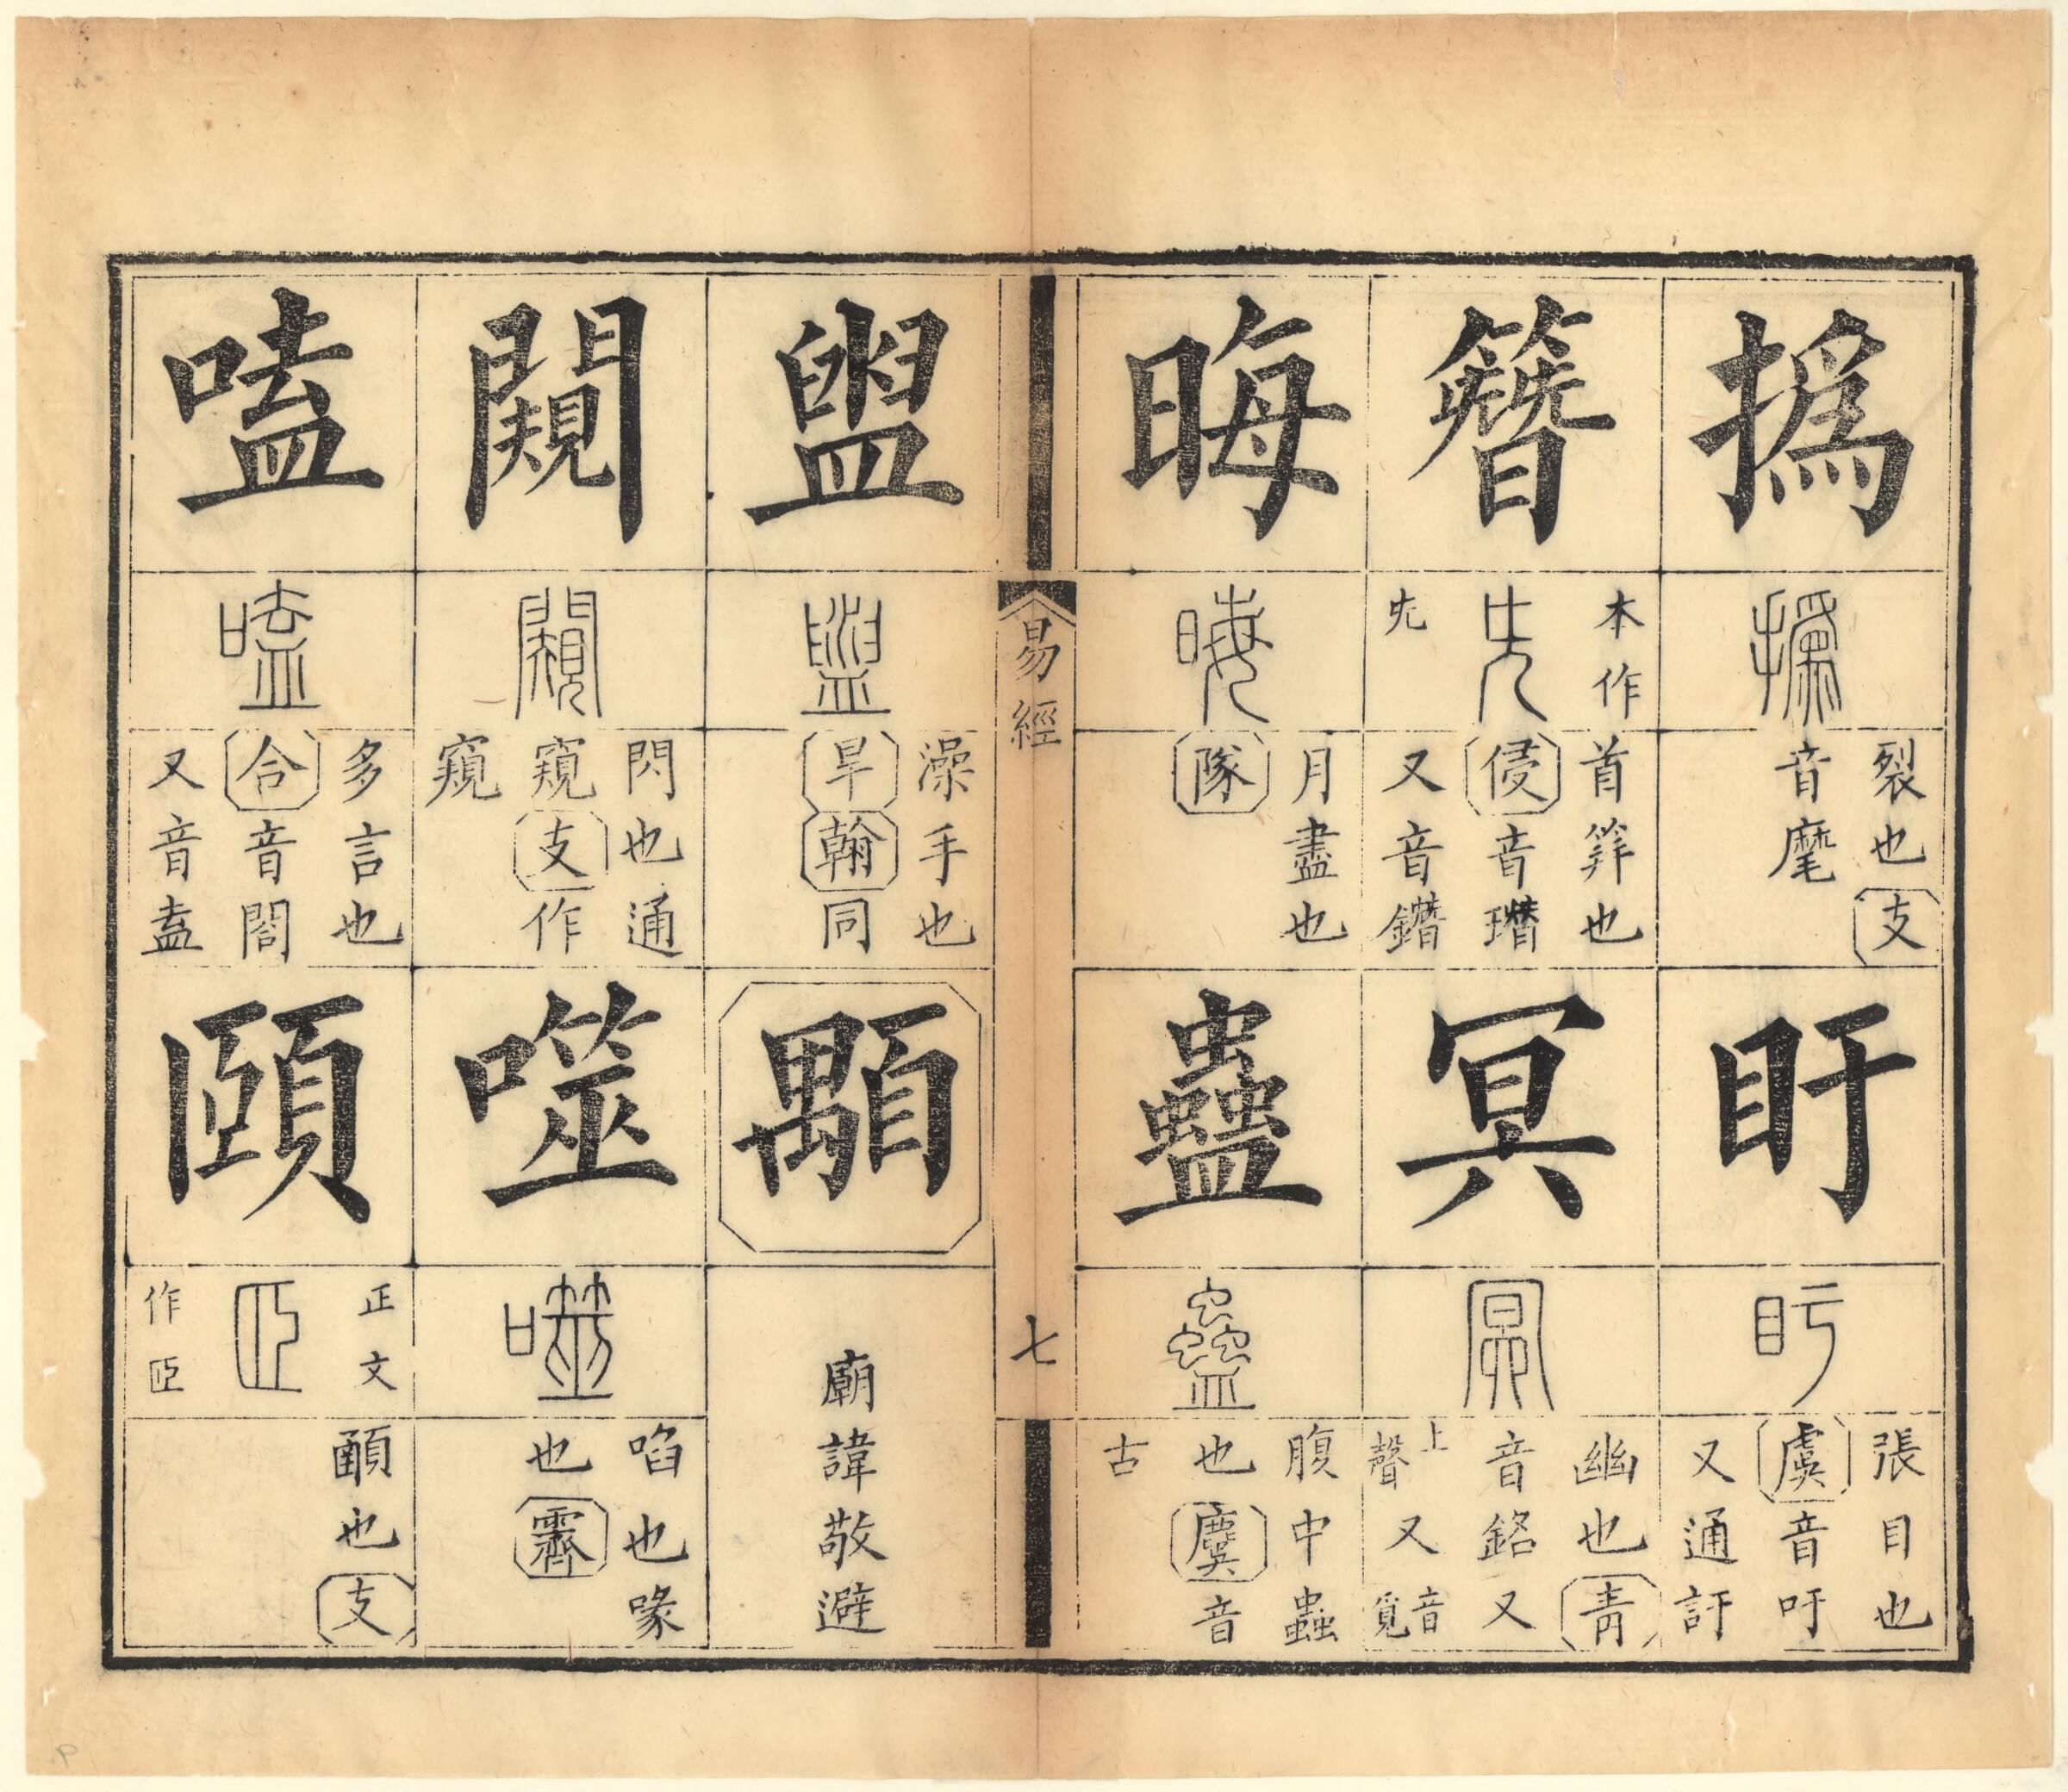 撝
撝
裂也支
音麾
盱
盱
張目也
虞音吁
又通訏
簪
本作
兂
兂
首筓也
侵音
又音鐕
冥
冥
幽也青
音銘又
上聲又音覓
晦
晦
月盡也
隊
蠱
蠱
腹中蟲
也麌音
古
易經
七
盥
盥
澡手也
旱翰同
顒
廟諱敬避
闚
闚
閃也通
窺支作
窺
噬
噬
啗也喙
也霽
嗑
嗑
多言也
合音閤
又音盍
頤
正文
𦣝
作𦣝
顄也支